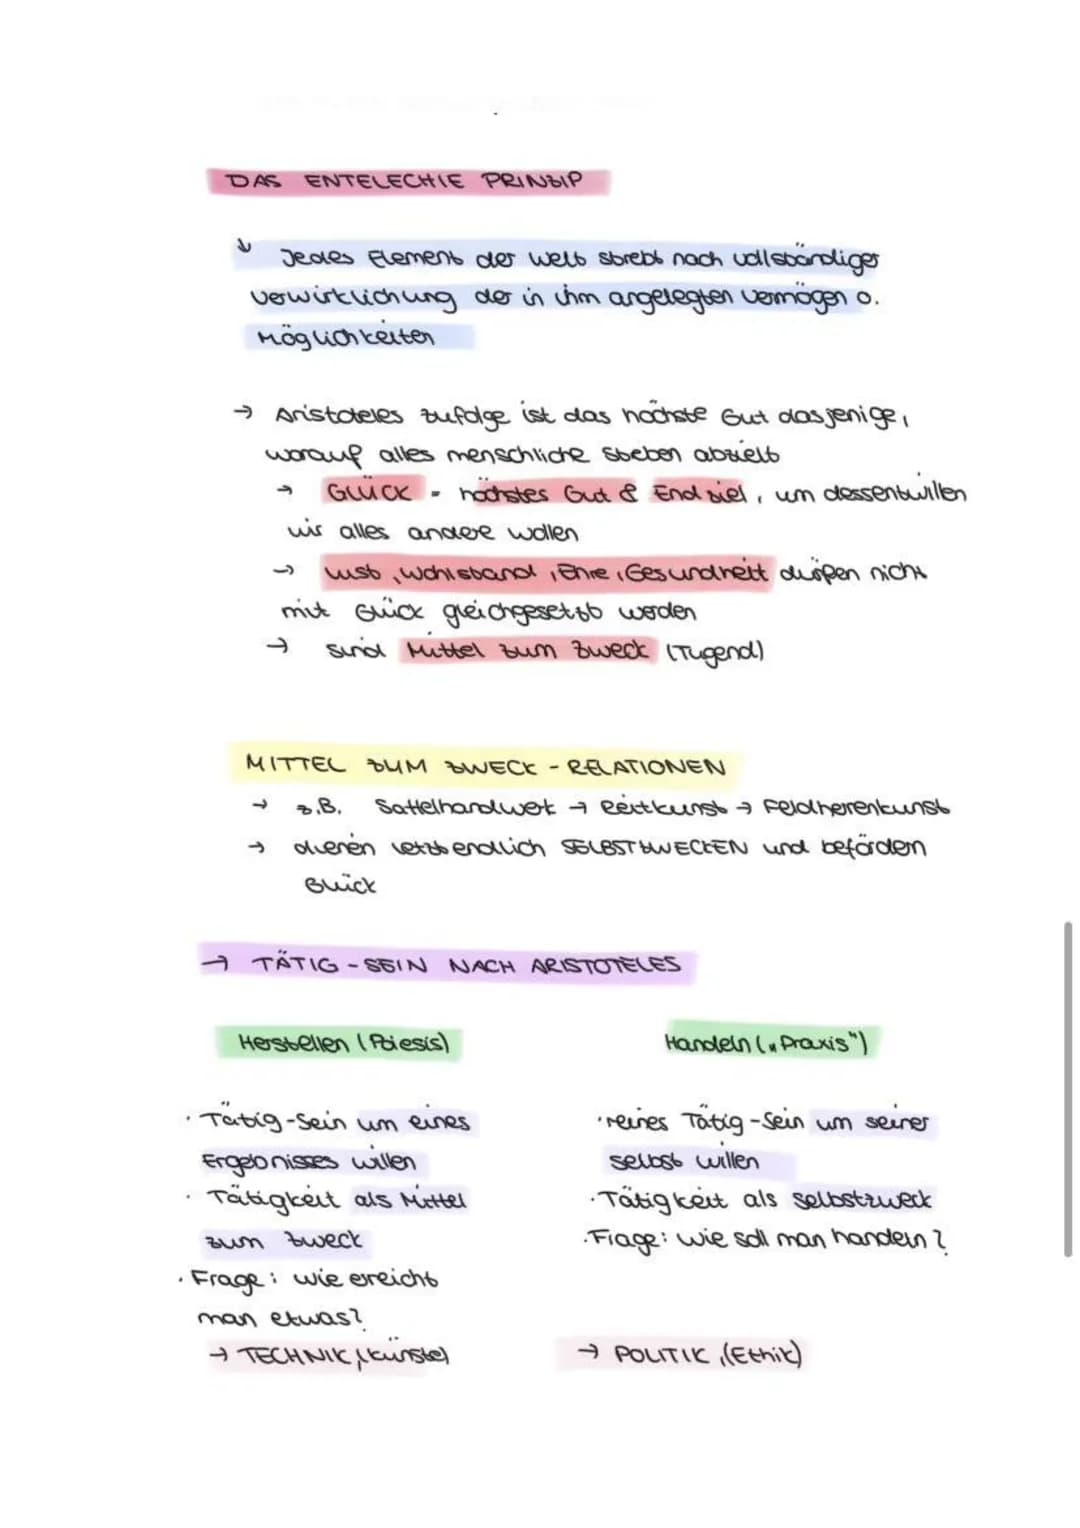 DAS ENTELECHIE PRINZIP
↓ Jedes Element der Welt strebt nach vollständiger
Verwirklichung der in ihm angelegten Vermögen o.
Möglichkeiten
→ Aristoteles zufolge ist das höchste Gut dasjenige,
worauf alles menschliche Steben abzielt
→ GLÜCK = höchstes Gut & Endziel, um dessentwillen
wir alles andere wollen
→ Lust, Wohlstand, Ehre, Gesundheit dürfen nicht
mit Glück gleichgesetzt werden
→ sind Mittel zum Zweck (Tugend)
MITTEL ZUM ZWECK - RELATIONEN
→ z.B. Sattelhandwek → Reitkunst → Feldherenkunst
→ dienen letztendlich SELBSTZWECKEN und befördern
Glück
→ TÄTIG-SEIN NACH ARISTOTELES
Herstellen (Poiesis)
· Tätig-Sein um eines
Ergebnisses willen
· Tätigkeit als Mittel
zum Zweck
· Frage: wie erreicht
man etwas?
→ TECHNIK, (Künste)
Handeln („Praxis")
· reines Tätig-Sein um seiner
selbst willen
· Tätigkeit als Selbstzweck
· Frage: wie soll man handeln?
→ POLITIK, (Ethik)